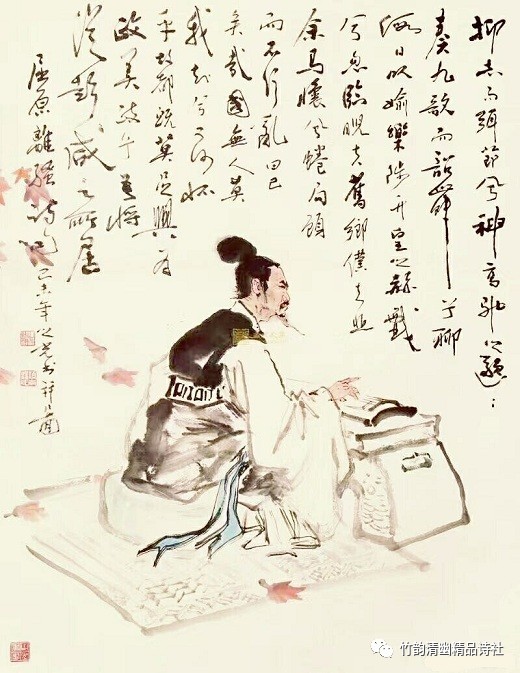 抑志而弭節兮神高馳之邈::
奏九歌而韶舞兮聊
假日以媮樂陟升皇之赫戲
兮忽臨睨夫舊鄉僕夫悲
余馬懷兮蜷局顧
而不行亂曰已
矣哉國無人莫
我知兮又何懷
乎故都既莫足與為
美政兮吾將
從彭咸之所居
屈原離騷詩句 年之光書并圖
竹韵清幽精品诗社